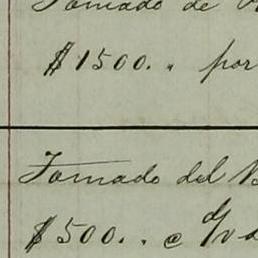 Tomado de
$1500. " por
Tomado del
$500. "